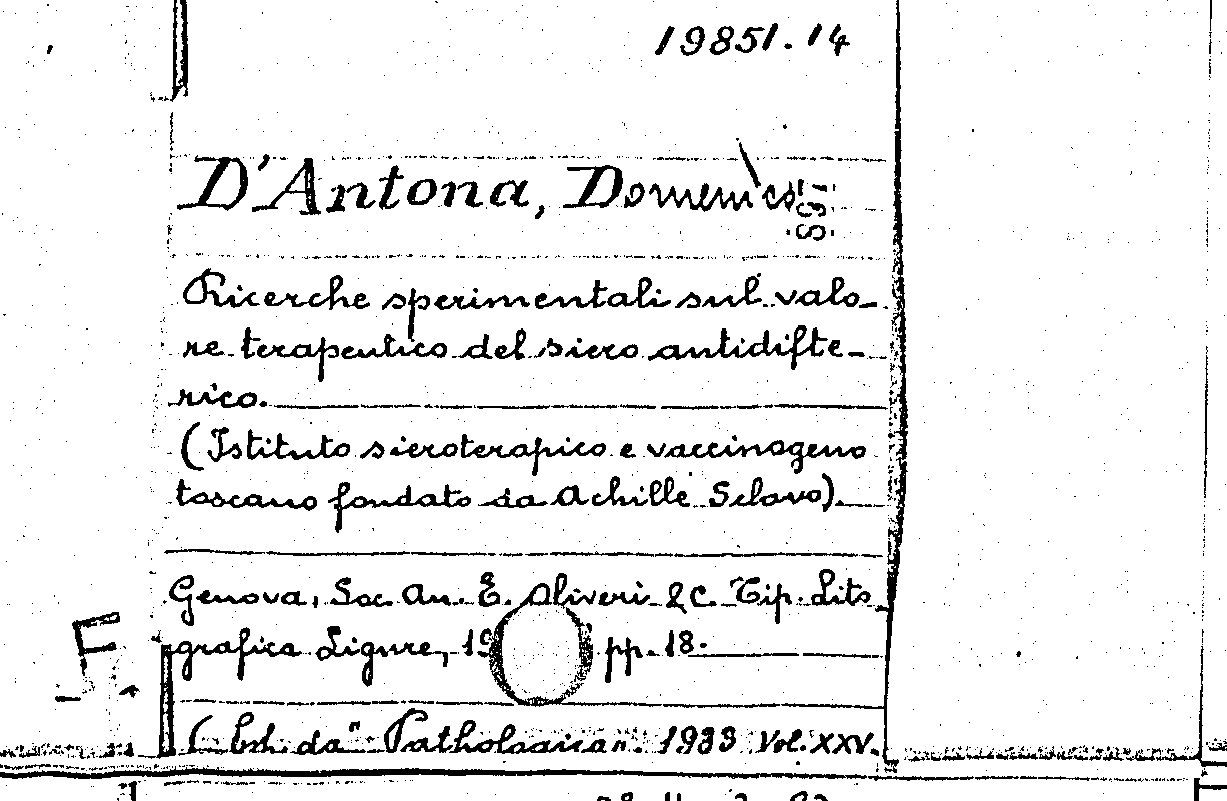 19851.14
D'Antona, Domenico
Ricerche sperimentali sul valo-
re terapeutico del siero antidifte-
rico.
(Istituto sieroterapico e vaccinogeno
toscano fondato da Achille Sclavo).
Genova, Soc. An. E. Oliveri & C. Tip. Lito
grafica Ligure, 19 pp. 18.
( da "Pathologica". 1933 Vol. XXV.